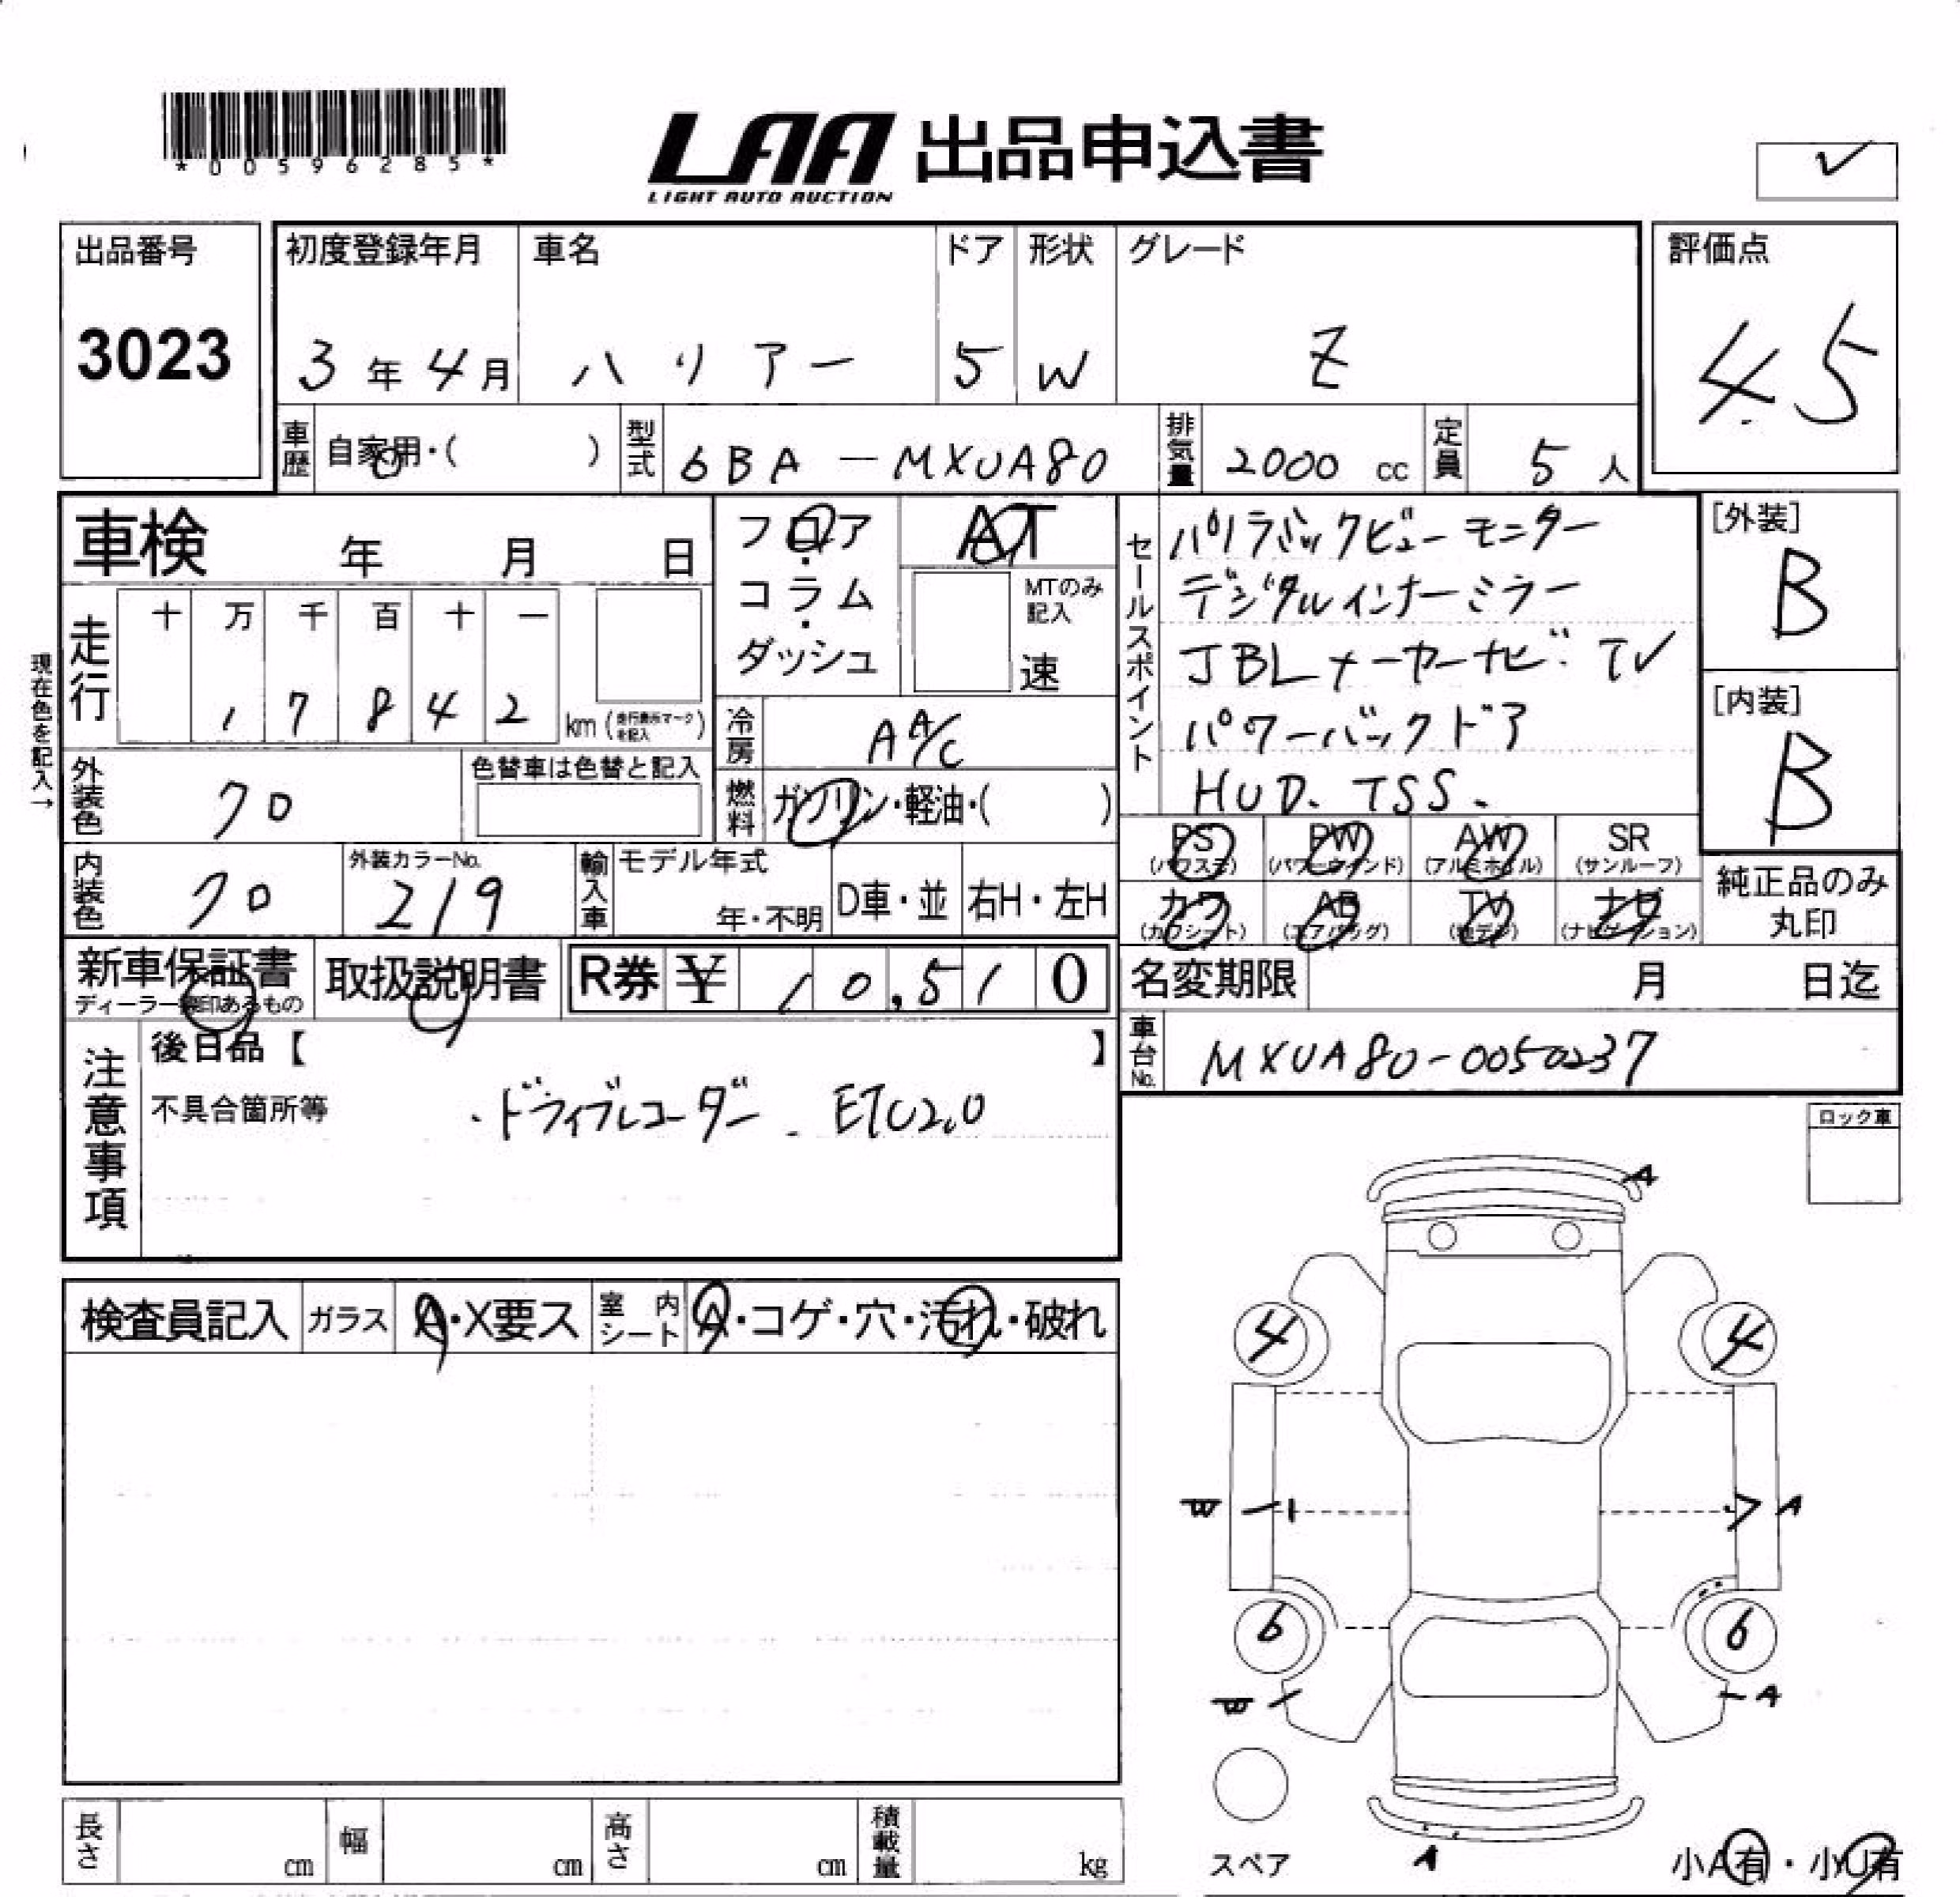 *00596285*
LAA 出品申込書
LIGHT AUTO AUCTION
出品番号
3023
初度登録年月
3年4月
車名
ハリアー
ドア
5
形状
W
グレード
Z
評価点
4.5
車歴 自家用・( )
型式 6BA-MXUA80
排気量 2000 cc
定員 5人
車検 年 月 日
現在色を記入→
走行
十 万 千 百 十 一
1 7 8 4 2 km (走行表示マークを記入)
フロア・コラム・ダッシュ
AT
MTのみ記入
速
冷房 AA/C
燃料 ガソリン・軽油・( )
セールスポイント
パノラミックビューモニター
デジタルインナーミラー
JBLメーカーナビ・TV
パワーバックドア
HUD. TSS.
[外装]
B
[内装]
B
外装色 クロ
色替車は色替と記入
内装色 クロ
外装カラーNo.
219
輸入車
モデル年式
年・不明
D車・並
右H・左H
PS (パワステ)
PW (パワーウインド)
AW (アルミホイル)
SR (サンルーフ)
カワ (カワシート)
AB (エアバッグ)
TV (地デジ)
ナビ (ナビゲーション)
純正品のみ
丸印
新車保証書
ディーラー捺印あるもの
取扱説明書
R券 ¥ 10,510
名変期限 月 日迄
車台No. MXUA80-0050237
注意事項
後日品【 】
不具合箇所等 ・ドライブレコーダー. ETC2.0
ロック車
検査員記入
ガラス A・X要ス
室内シート A・コゲ・穴・汚れ・破れ
A
4 4
W A
6 6
W A
スペア
A
小A有・小U有
長さ cm
幅 cm
高さ cm
積載量 kg